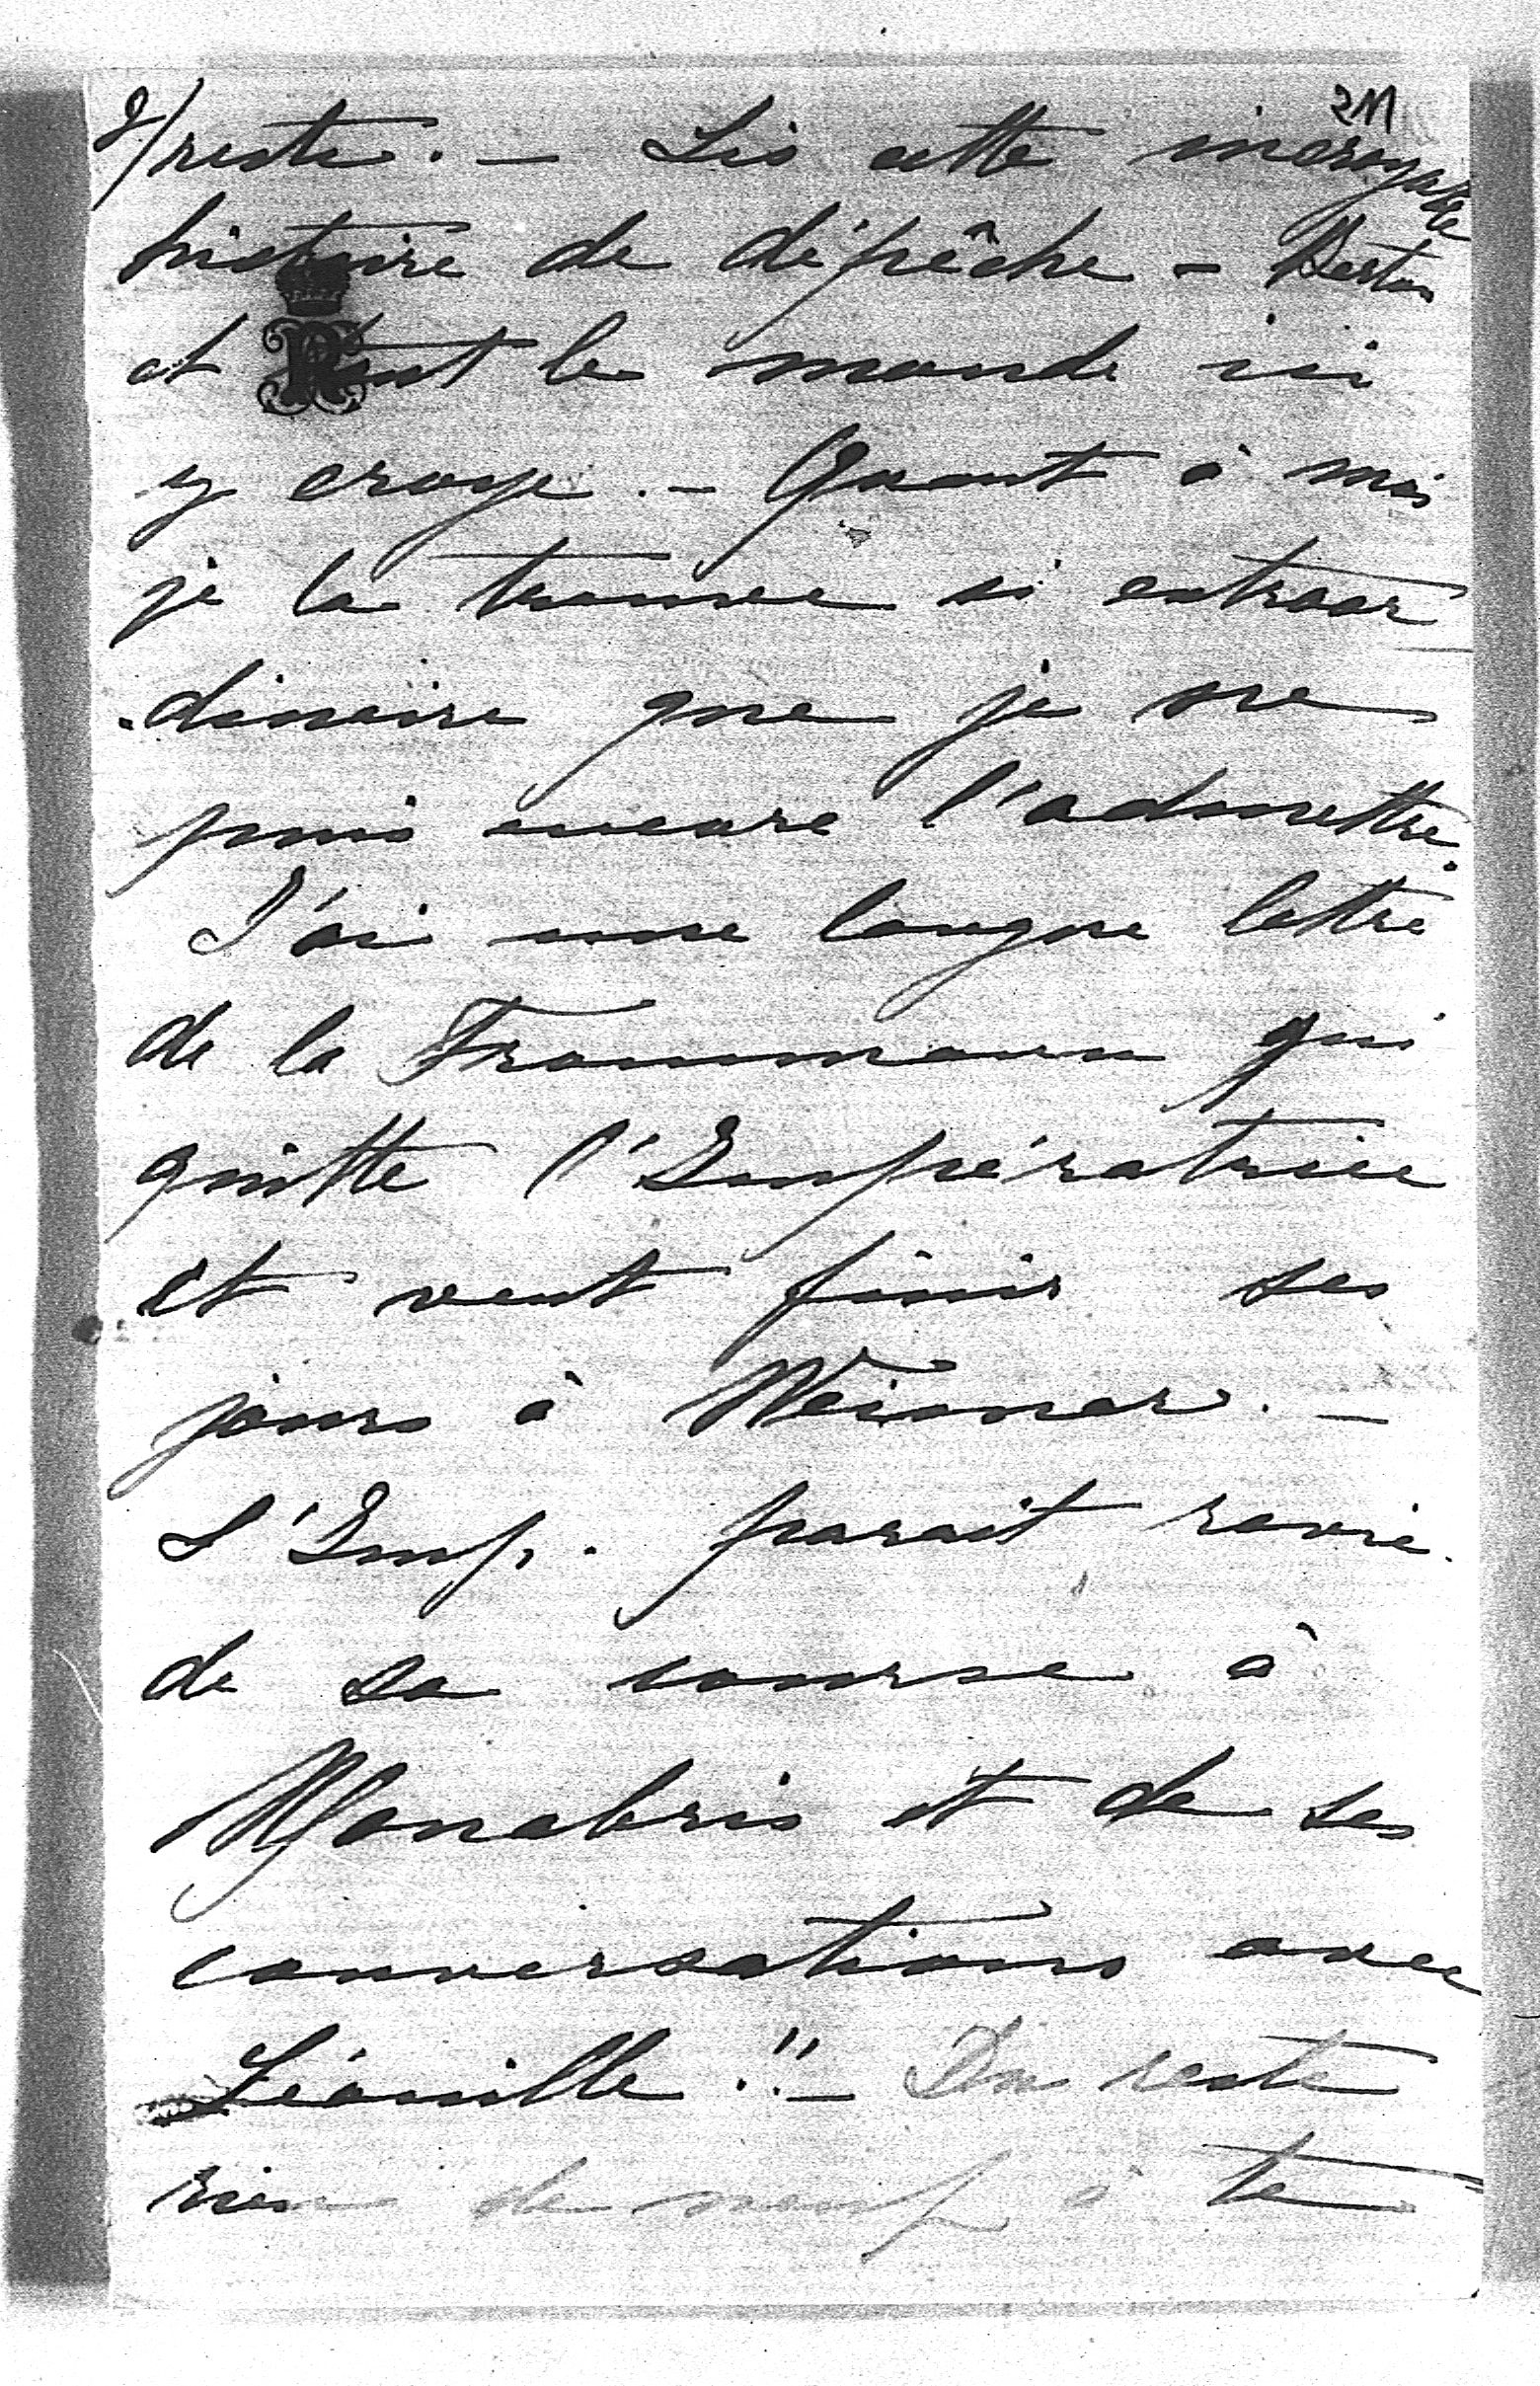 211
2/ reste. - Lis cette incroyable
histoire de dépêche - Berton
et tout le monde ici
y croye. - Quant à moi
je la trouve si extraor
-dinaire que je ne
puis encore l'admettre.
J'ai une longue lettre
de la Frommann qui
quitte l'Impératrice
et veut finir ses
jours à Weimar. -
L'Imp. parait ravie
de sa course à
Monabris et de ses
conversations avec
Léonille!! - Du reste
rien de neuf à te